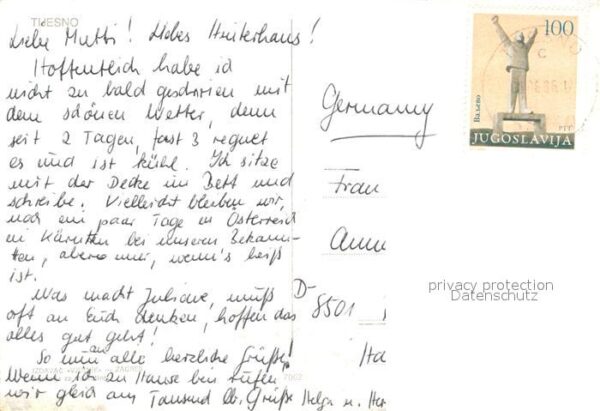 TIJESNO
Liebe Mutti! Liebes Hinterhaus!
Hoffentlich habe ich
nicht zu bald geschrien mit
dem schönen Wetter, denn
seit 2 Tagen, fast 3 regnet
es und ist kühl. Ich sitze
mit der Decke im Bett und
schreibe. Vielleicht bleiben wir
noch ein paar Tage in Österreich
in Kärnten bei unseren Bekann-
ten, aber nur, wenn's heiß
ist.
Was macht Juliane, muß
oft an Euch denken, hoffen das
alles gut geht!
So nun an alle herzliche Grüße!
Wenn ich zu Hause bin rufen
wir gleich an Tausend lb. Grüße Helga u. Her
Germany
Frau
Anne
D-8501
Ha
100
Ваљево
PTT
JUGOSLAVIJA
privacy protection
Datenschutz